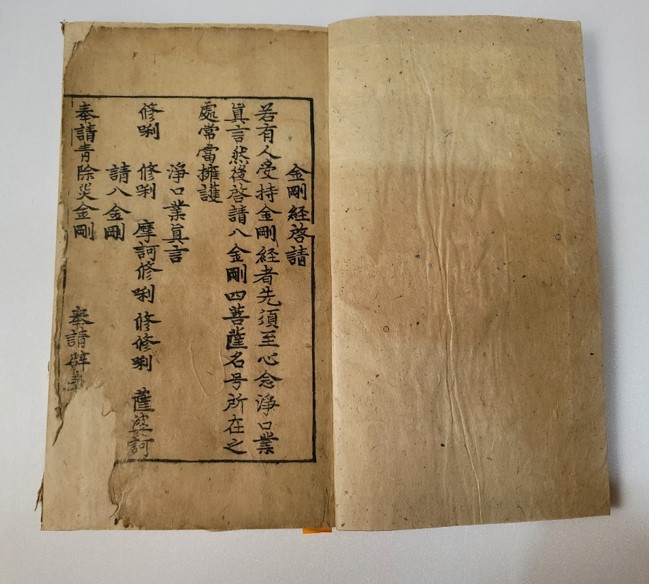 金剛経啓請
若有人受持金剛経者先須至心念淨口業
眞言然後啓請八金剛四菩薩名号所在之
處常當擁護
淨口業眞言
修唎 修唎 摩訶修唎 修修唎 薩婆訶
請八金剛
奉請青除災金剛 奉請辟